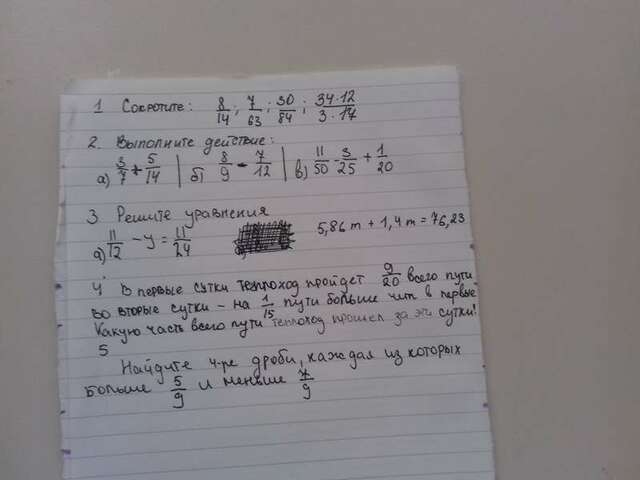 1 Сократите: 8/14; 7/63; 30/84; 34·12/3·17
2. Выполните действие:
а) 3/7 + 5/14 | б) 8/9 - 7/12 | в) 11/50 - 3/25 + 1/20
3 Решите уравнения
а) 11/12 - y = 11/24 5,86m + 1,4m = 76,23
4. В первые сутки теплоход пройдет 9/20 всего пути
во вторые сутки - на 1/15 пути больше чит в первые
Какую часть всего пути теплоход прошел за эти сутки?
5 Найдите 4-ре дроби, каждая из которых
больше 5/9 и меньше 7/9